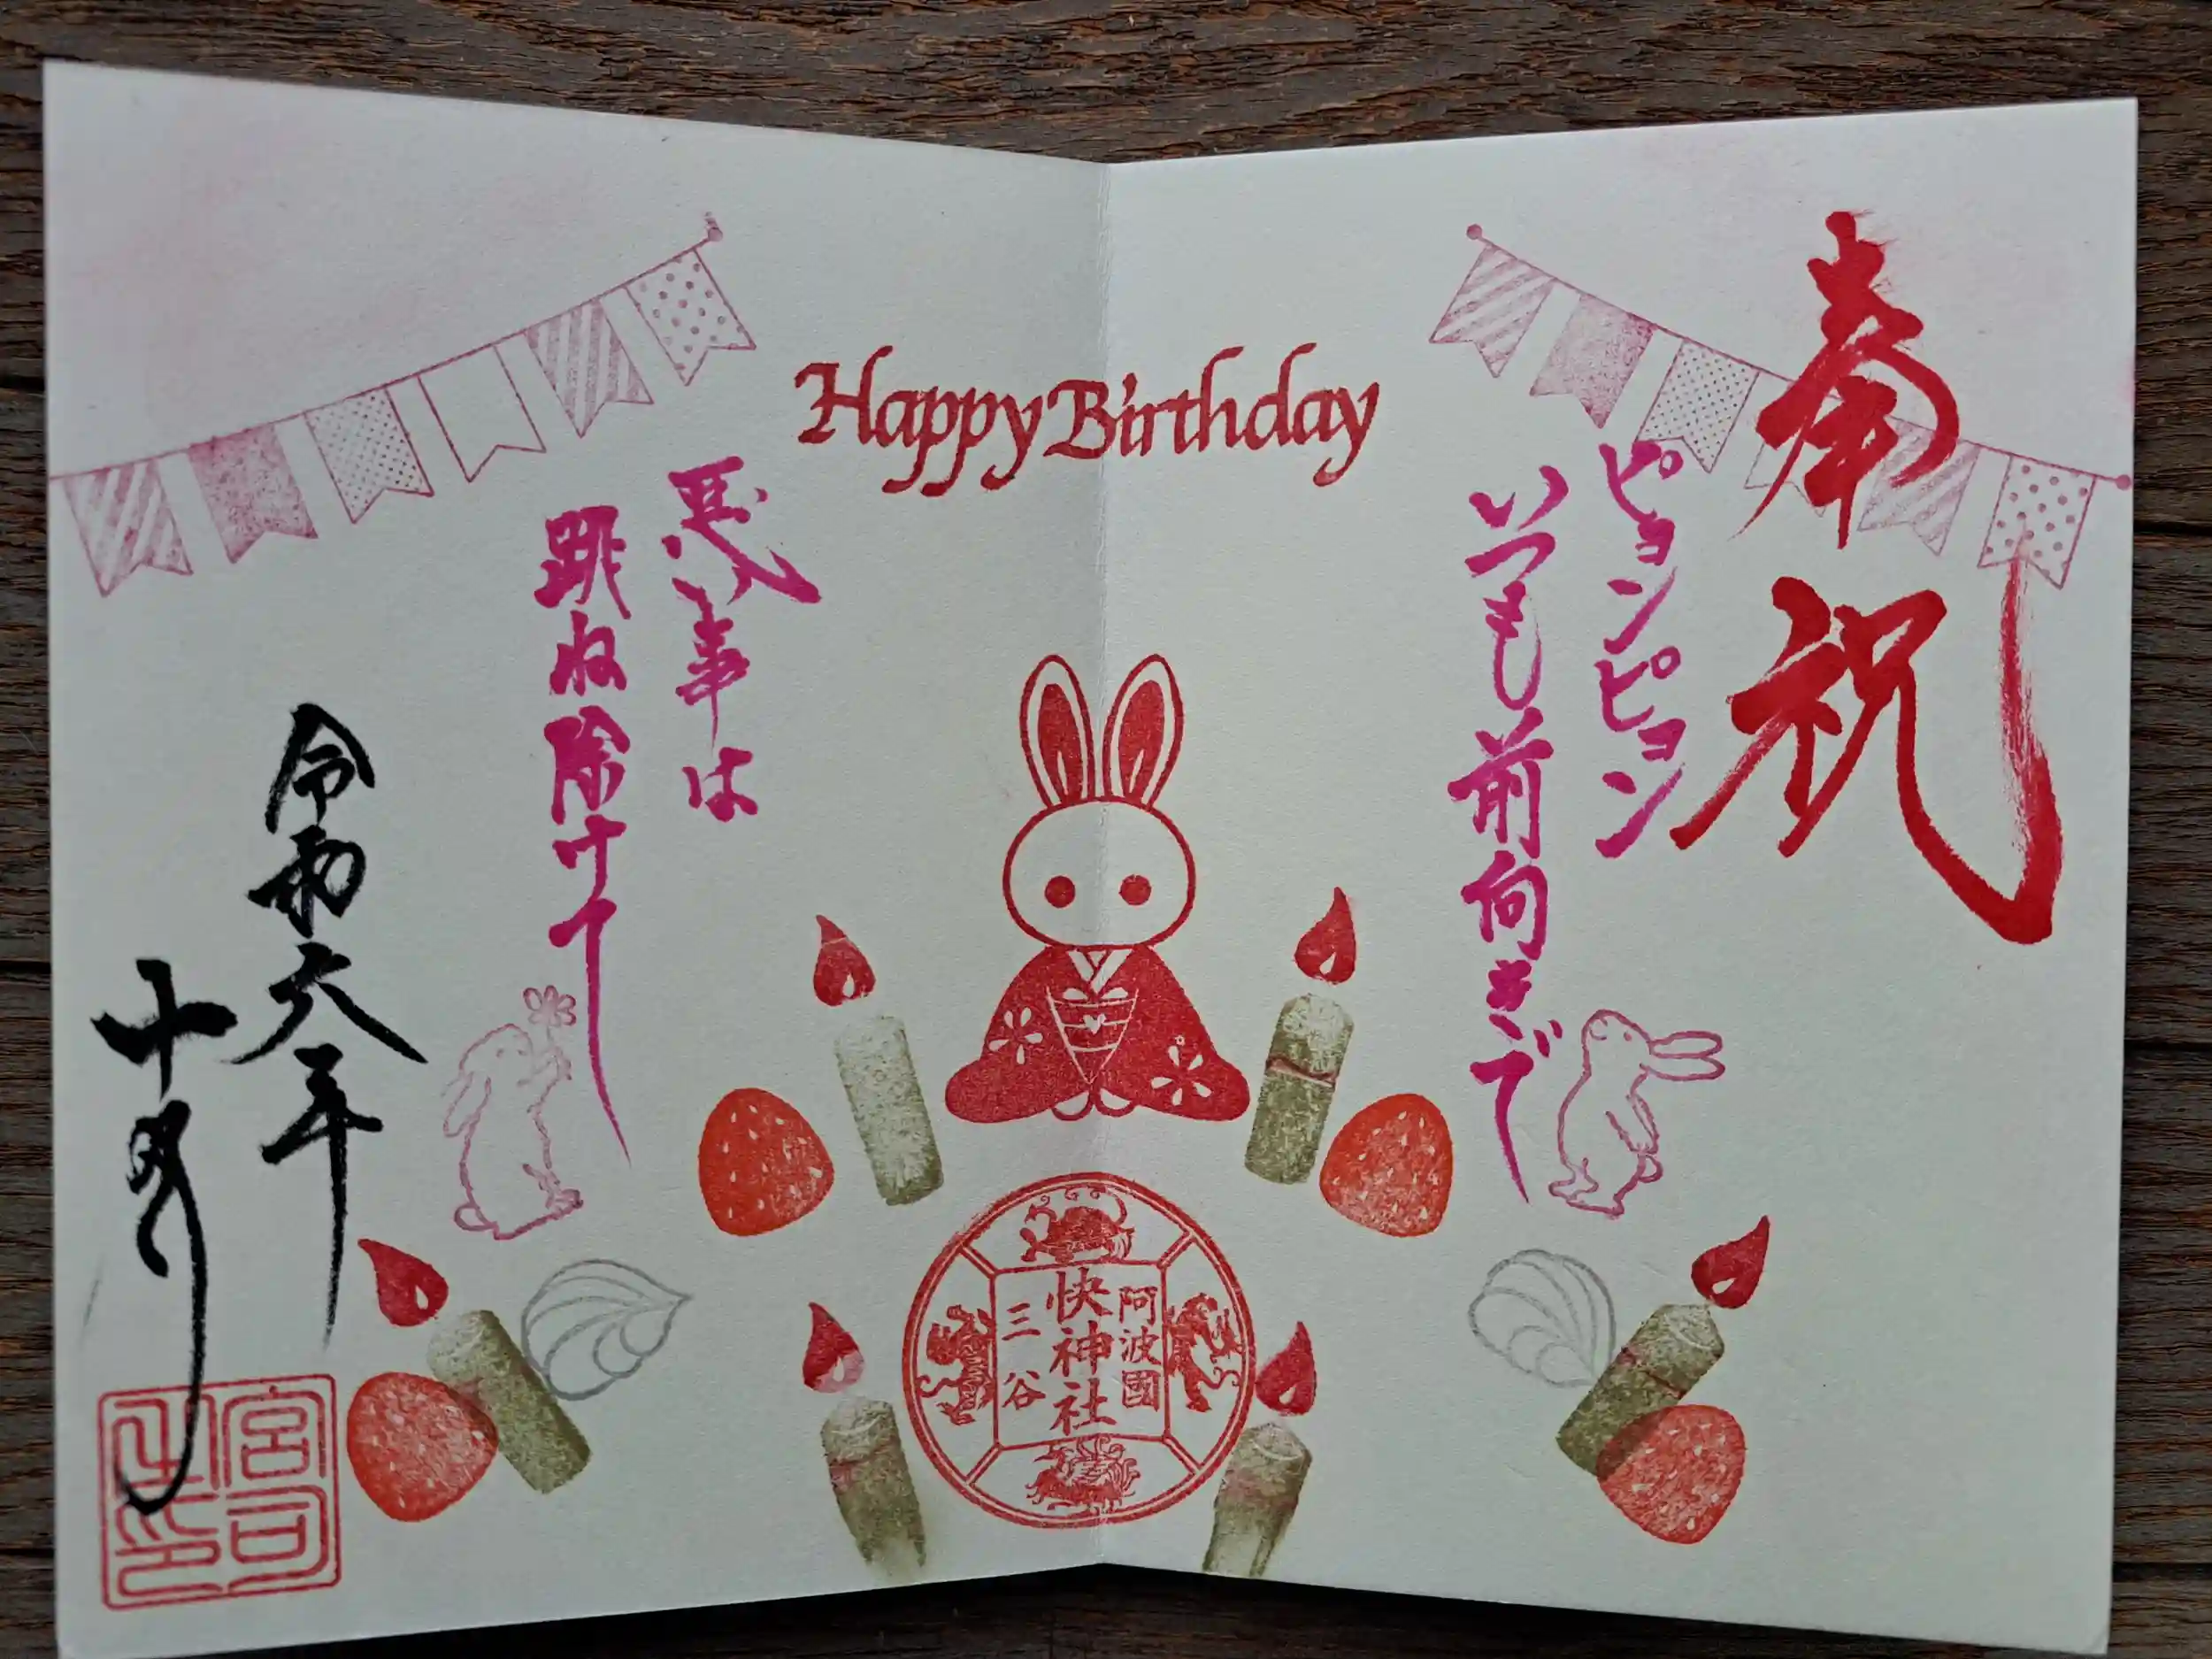 奉祝
Happy Birthday
ピョンピョン
いつも前向きで
悪い事は
跳ね除けて
阿波國
快神社
三谷
令和六年
十月
宮司
之印